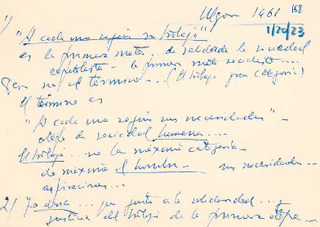 Ulgor 1961 168
1/20/23
1) "A cada uno según su trabajo"
es la primera meta... de salida de la sociedad
capitalista - la primera meta socialista....
Pero no el término... (El trabajo gran categoría)
El término es
"A cada uno según sus necesidades" -
etapa de sociedad humana....
El trabajo... no la máxima categoría -
de máxima el hombre - sus necesidades -
aspiraciones....
2) La otra... ya junto a la solidaridad....
justicia del trabajo de la primera etapa -